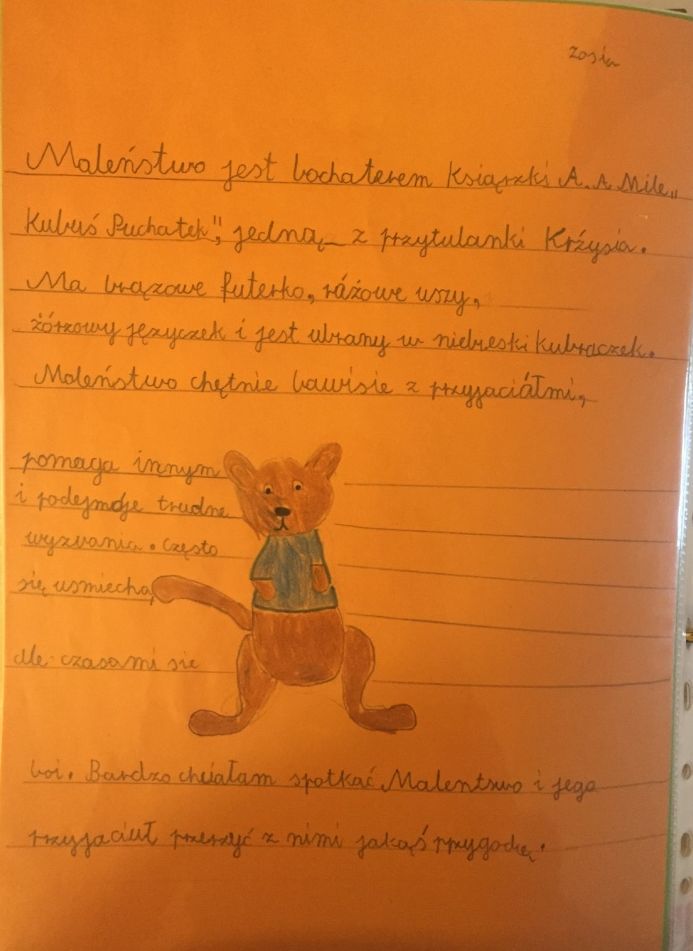 Zosia
Maleństwo jest bochaterem Ksiąrzki A. A. Mile„
Kubuś Puchatek", jedną z przytulanki Krźysia.
Ma brązowe futerko, ráżowe uszy,
żórzowy języczek i jest ubrany w niebeski kubraczek.
Maleństwo chętnie bawisie z przyjaciáłmi,
pomaga innym
i podejmoje trudne
wyzwania. Często
się usmiecha,
ale czasami sie
boi. Bardzo chciałam spotkać Malentswo i jego
przyjaciuł przerzyć z nimi jakąś ppygodę.